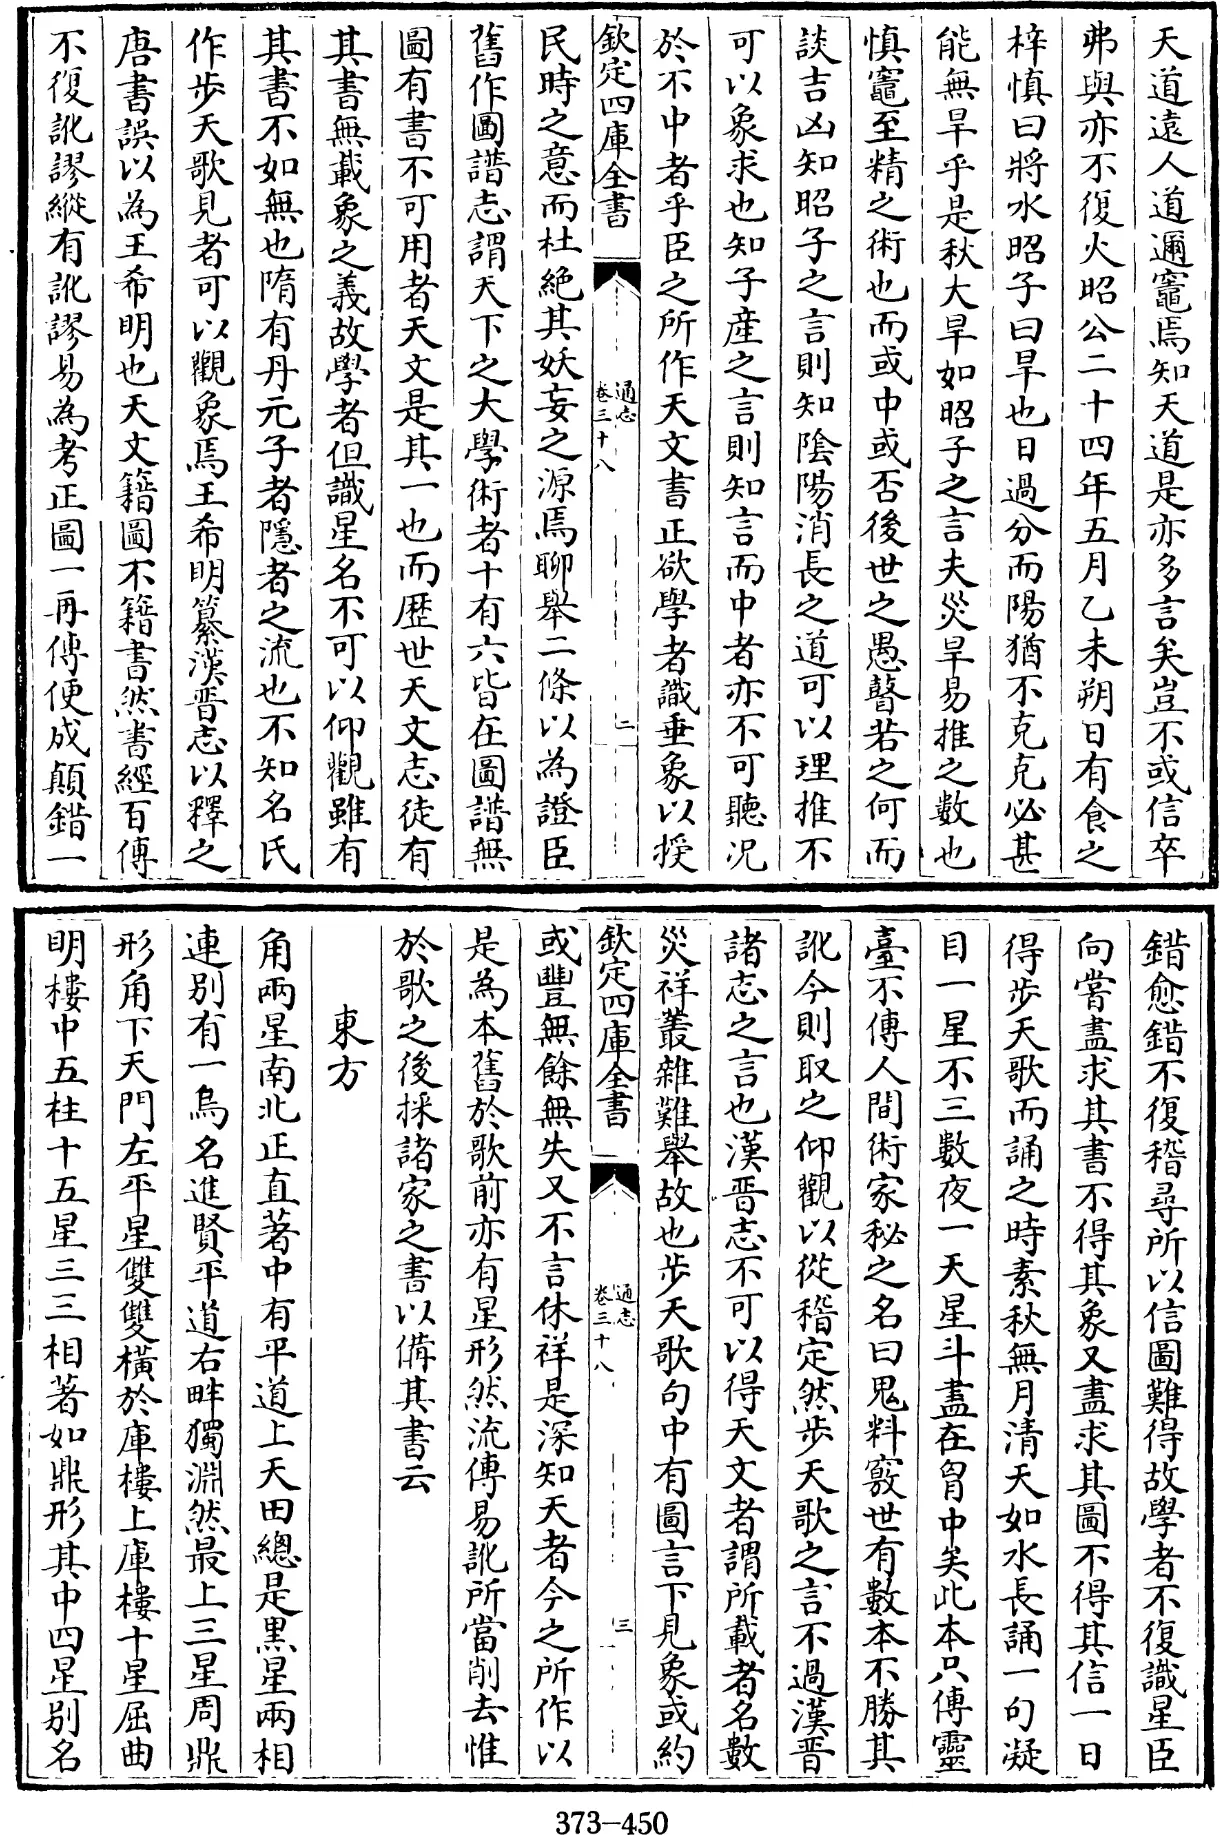 天道遠人道邇竈焉知天道是亦多言矣豈不或信卒
弗與亦不復火昭公二十四年五月乙未朔日有食之
梓慎曰將水昭子曰旱也日過分而陽猶不克克必甚
能無旱乎是秋大旱如昭子之言夫災旱易推之數也
慎竈至精之術也而或中或否後世之愚瞽若之何而
談吉凶知昭子之言則知陰陽消長之道可以理推不
可以象求也知子產之言則知言而中者亦不可聽况
於不中者乎臣之所作天文書正欲學者識垂象以授
欽定四庫全書
通志
卷三十八
二
民時之意而杜絶其妖妄之源焉聊舉二條以為證臣
舊作圖譜志謂天下之大學術者十有六皆在圖譜無
圖有書不可用者天文是其一也而歴世天文志徒有
其書無載象之義故學者但識星名不可以仰觀雖有
其書不如無也隋有丹元子者隱者之流也不知名氏
作步天歌見者可以觀象焉王希明纂漢晋志以釋之
唐書誤以為王希明也天文籍圖不籍書然書經百傳
不復訛謬縱有訛謬易為考正圖一再傳便成顛錯一
錯愈錯不復稽尋所以信圖難得故學者不復識星臣
向嘗盡求其書不得其象又盡求其圖不得其信一日
得步天歌而誦之時素秋無月清天如水長誦一句凝
目一星不三數夜一天星斗盡在胷中矣此本只傳靈
臺不傳人間術家秘之名曰鬼料竅世有數本不勝其
訛今則取之仰觀以從稽定然步天歌之言不過漢晋
諸志之言也漢晋志不可以得天文者謂所載者名數
災祥叢雜難舉故也步天歌句中有圖言下見象或約
欽定四庫全書
通志
卷三十八
三
或豐無餘無失又不言休祥是深知天者今之所作以
是為本舊於歌前亦有星形然流傳易訛所當削去惟
於歌之後採諸家之書以備其書云
東方
角兩星南北正直著中有平道上天田總是黒星兩相
連別有一烏名進賢平道右畔獨淵然最上三星周鼎
形角下天門左平星雙雙橫於庫樓上庫樓十星屈曲
明樓中五柱十五星三三相著如鼎形其中四星別名
373-450